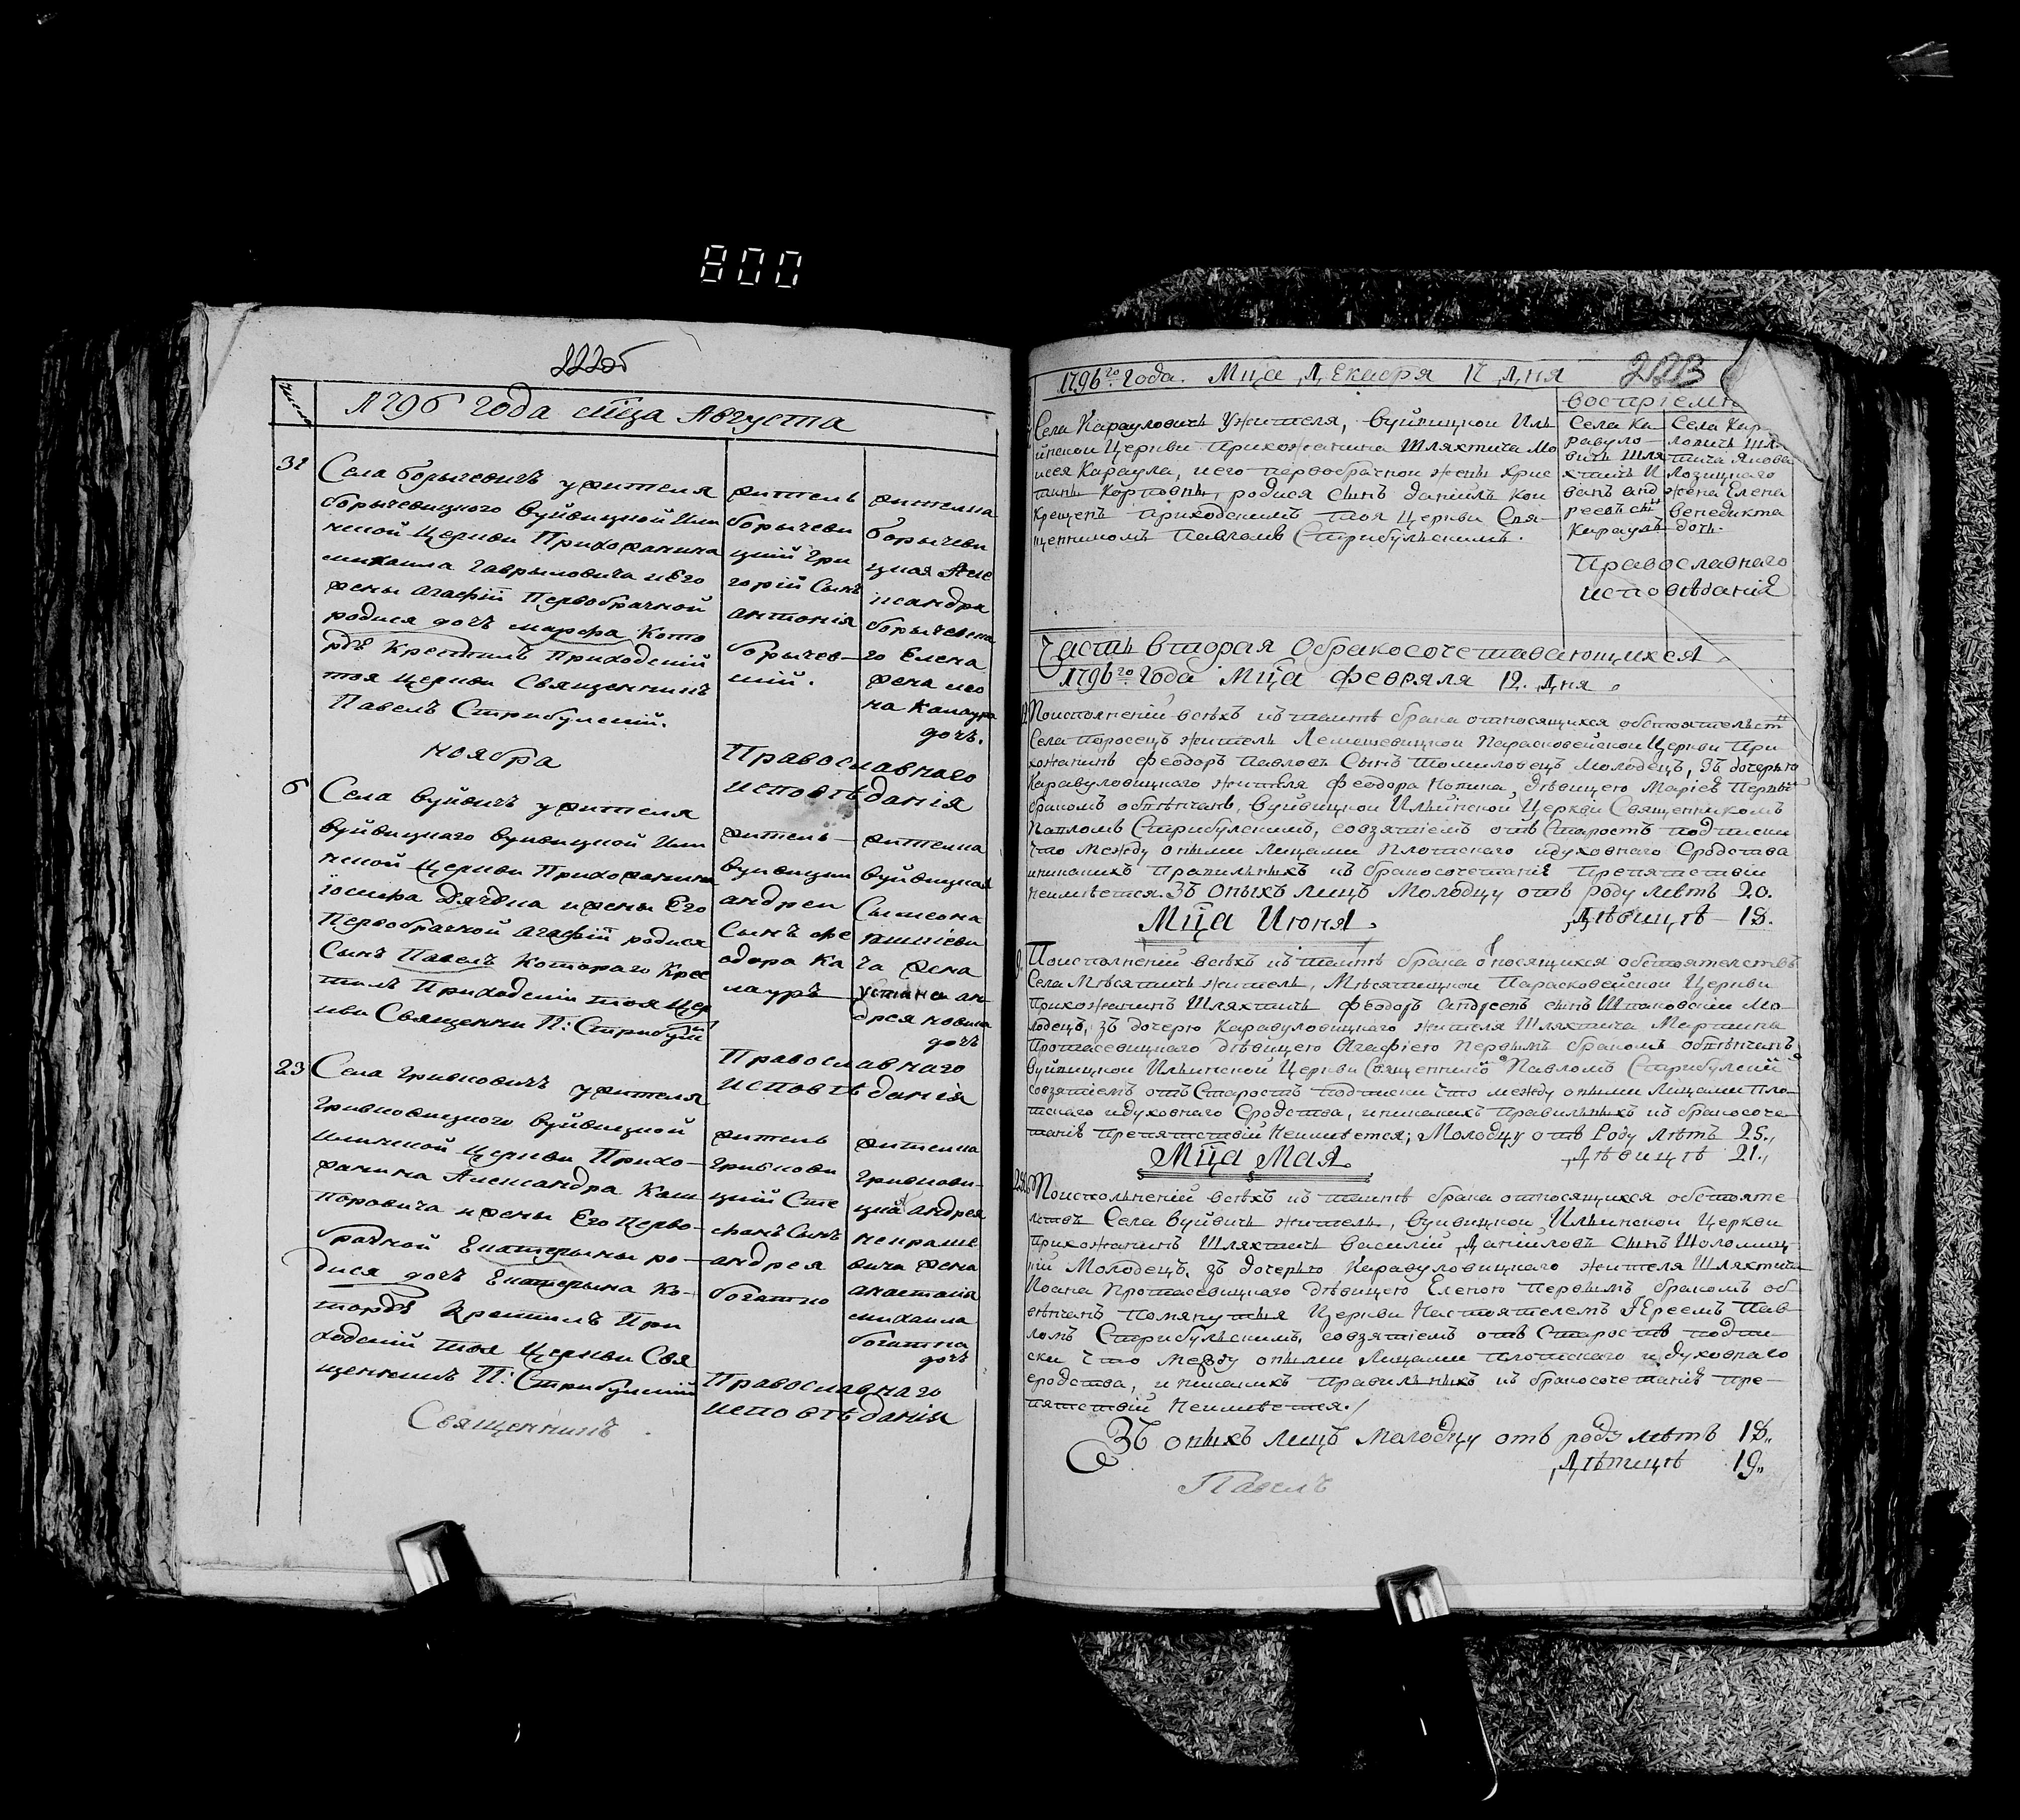 800
222об
число
1796 года мца Августа
31
Села борычевичъ ужителя
борычевицкого вуйвицкой Или
нской Церкви Прихожанина
михаила гаврыловича и его
жены агафіи Первобрачной
родися дочъ марфа Кото
рѣ Крестилъ Приходскій
тоя Церкви Священникъ
Павелъ Стрибулскій.
житель
борычеви
цкій Гри
горій Сынъ
антонія
борычев
скій.
жителка
борычеви
цкая Але
ѯандра
борычевска
го Елена
жена ио
на Калаура
дочъ.
Православнаго
исповѣданія
ноября
6
Села вуйвичъ ужителя
вуйвицкаго вуйвицкой Или
нской Церкви Прихожанина
іосифа Дячука и жены Его
Первобрачной агафіи родися
Сынъ Павелъ Котораго Крес
тилъ Приходскій тоя Цер
кви Священни П: Стрибулскій
житель
вуйвицки
андрей
Сынъ фе
одора Ка
лауръ
жителка
вуйвицкая
Сымеона
ча жена
дочъ
Православнаго
исповѣданія
23
Села гривковичъ ужителя
гривковицкого вуйвицкой
Илинской Церкви Прихо-
жанина Александра Каш
паровича и жены Его Перво-
брачной Екатерыны ро-
дися дочъ Екатерына Ко-
торѣ Крестилъ При
ходскій тоя Церкви Свя
щенникъ П: Стрибулскій
житель
гривкови
цкій Сте
фанъ Сынъ
андрея
богатко
жителка
гривкови-
цкая андрея
некраше
вича жена
анастасія
михаила
богатка
дочъ
Православнаго
исповѣданія
Священникъ
1796го Года. Мца Декабря 17 Дня
223
воспріемн
Села Карауловичъ Ужителя, вуйвицкои Иль
инскои Церкви прихожанина Шляхтича Мо
исея Караула, и его первобрачнои жены Хрис
тины Карповны, родися сынъ даніилъ кои
Крещенъ приходскимъ тоя Церкви Свя-
щенникомъ Павломъ Стрибульскимъ.
Села Ка
равуло
вичъ Шля
хтичъ И
ванъ анд
реевъ снъ
Караулъ
Села Кар
ловичъ Шл
тича Якова
Лозицкаго
жена Елена
венедикта
дочь.
Православнаго
исповѣданія
Часть вторая обракосочетавающихся
1796го Года Мца февраля 12. Дня.
12
Поисполненіи всѣхъ къ таинѣ брака относящихся обстоятельст
Села Поросецъ житель Лемешевицкои Парасковейскои Церкви При
хожанинъ феодоръ Павловъ Сынъ Томиловецъ Молодецъ, зъ дочерью
Каравуловицкаго жителя феодора Копика, дѣвицею Маріею Первы
бракомъ обвѣнчанъ, вуйвицкои Ильинской Церкви Священникомъ
Павломъ Стрибулскимъ, совзятіемъ отъ Старостъ подписки
что Между оными Лицами плотскаго идуховнаго Сродства
иникакихъ правильныхъ къ бракосочетанію препятствіи
неимѣется. Зъ Оныхъ лицъ Молодцу отъ роду лѣтъ 20.
Дѣвицѣ 18.
Мца Июня.
9
Поисполненіи всѣхъ къ таинѣ брака относящихся обстоятелствъ
Села Мѣсятичъ житель, Мѣсятицкои Парасковейскои Церкви
прихожанинъ Шляхтичъ феодоръ андреевъ сынъ Шпаковскіи Мо
лодецъ, зъ дочерю Каравуловицкаго жителя Шляхтича Мартина
Протасевицкаго дѣвицею Агафіею первымъ бракомъ обвѣнчанъ
вуйвицкои Ильинской Церкви Священнико Павломъ Стрибулскі
совзятіемъ отъ Старостъ подписки что между оными Лицами пло
тскаго идуховнаго Сродства, иникакихъ правильныхъ къ бракосоче
танію препятствіи Неимѣется; Молодцу отъ Роду лѣтъ 25.,
Дѣвицѣ 21.,
Мца Мая.
Поисполненіи всѣхъ къ таинѣ брака относящихся обстояте
лствъ Села вуйвичъ житель, вуйвицкои Ильинскои Церкви
прихожанинъ Шляхтичъ василіи Даніиловъ сынъ Шоломиц
кіи Молодецъ, зъ дочерью Каравуловицкаго жителя Шляхтича
Иоана Протасевицкаго дѣвицею Еленою первымъ бракомъ об
вѣнчанъ помянутыя Церкви Настоятелемъ Іереемъ Пав
ломъ Стрибульскимъ, совзятіемъ отъ Старостъ подпи
ски что между оными Лицами плотскаго и духовнаго
сродства, иникакихъ правильныхъ къ бракосочетанію пре-
пятствіи Неимѣется.
Зъ оныхъ лицъ Молодцу отъ роду лѣтъ 18.,
Дѣвицѣ 19.,
Павелъ